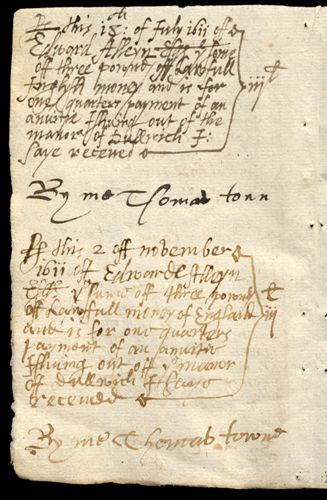 R this 18: of July 1611 of
th
Edward Alleyn Esq y some
off three pownd off Lawfull
Inglish money and is for iii£
one quarters payment of an
anuitie Ishuing out of the
manor of Dullwich I:
saye receved
By me Thomas tonn
R this 2 off november
1611 of Edwarde Alleyn
Esq y sume off three pownd £
off Lawfull money of England iii
and is for one quarters
payment of an anuitie
Ishuing out off ye manor
of dullwich I saye
receved
By me Thomas towne